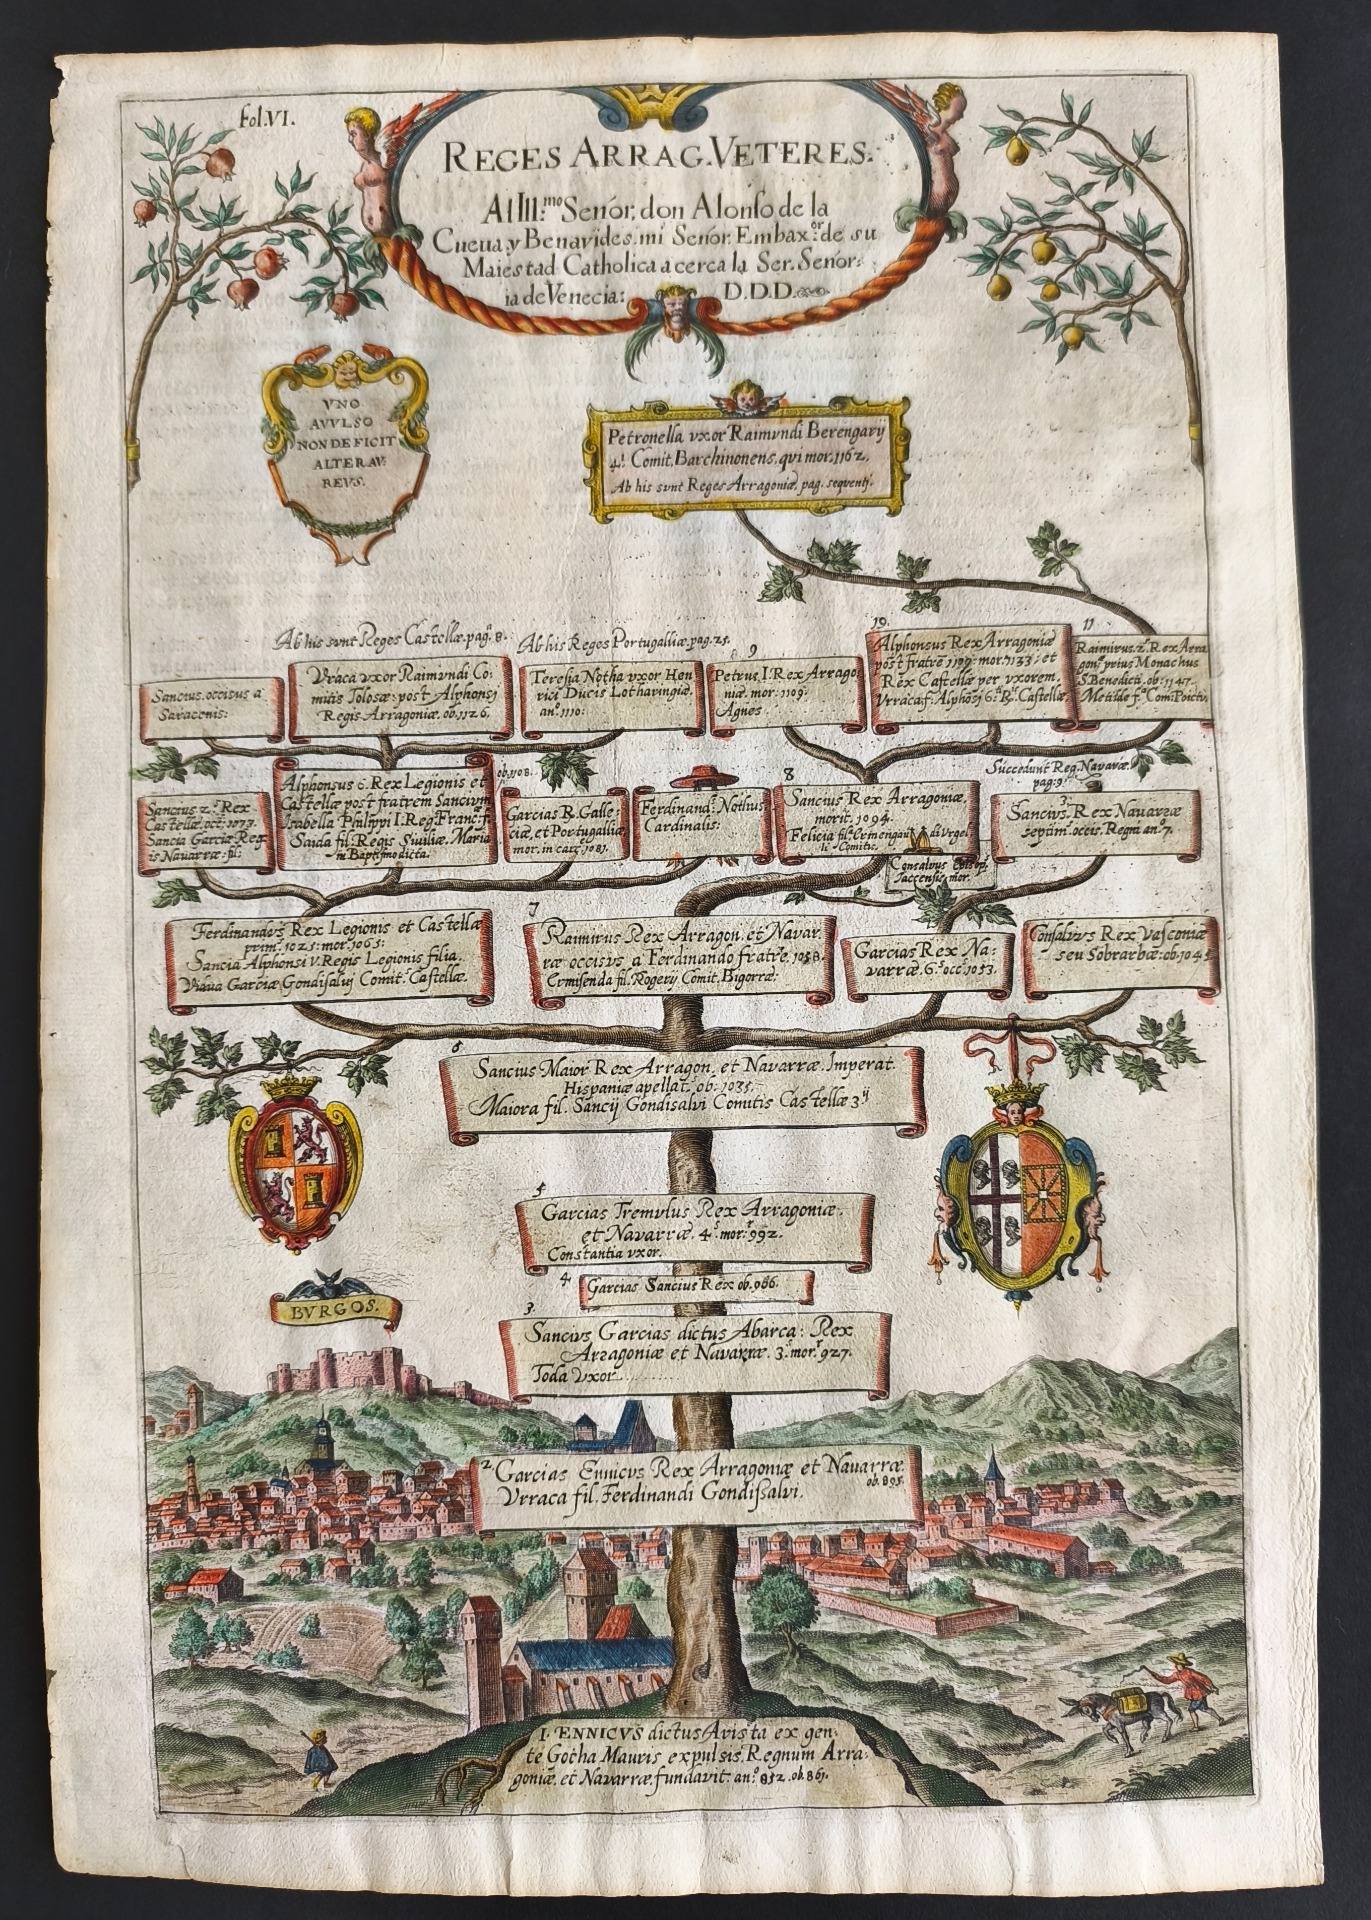 fol.VI.
REGES ARRAG.VETERES.
Al Ill.mo Senor, don Alonso de la
Cueua, y Benavides. mi Senor. Embax.or de su
Maiestad Catholica acerca la Ser. Senor-
ia de Venecia: D.D.D.
VNO
AVVLSO
NON DEFICIT
ALTER AV:
REVS.
Petronella vxor Raimvndi Berengarij
4.i Comit. Barchinonens. qui mor. 1162.
Ab his svnt Reges Arragoniæ, pag. seqventj.
Ab his svnt Reges Castellæ. pag. 8.
Ab his Reges Portugalliæ. pag. 25.
Sanctus occisus a
Saracenis:
Vráca vxor Raimvndi Co:
mitis Tolosæ: post Alphonsj
Regis Arragoniæ. ob. 1126.
Teresia Notha vxor Hen
rici Ducis Lotharingiæ.
an.o 1110:
9
Petrus I. Rex Arrago
niæ. mor: 1109.
Agnes
10.
Alphonsus Rex Arragoniæ
post fratrē 1109: mor. 1133: et
Rex Castellæ per vxorem.
Vrraca f. Alphosj 6.i R. Castellæ.
11
Raimirus. 2. Rex Arra
gon. prius Monachus
S. Benedicti. ob: 1147.
Metilde f.a Com. Poictv.
Sancius 2.s Rex
Castellæ. occ: 1073.
Sancia Garciæ Reg
is Nauarræ. fil:
Alphonsus 6. Rex Legionis et
Castellæ post fratrem Sancium
Isabella Philippi I. Reg. Franc. f.
Saida fil: Regis Siuiliæ. Maria
in Baptismo dicta.
ob. 1108.
Garcias R. Galle:
ciæ, et Portugalliæ
mor. in carc. 1081.
Ferdinand.s Nothus
Cardinalis:
8
Sancius Rex Arragoniæ,
morit. 1094.
Felicia fil. Ermengau
di Vrgel
li Comitis.
Consalvus Episop.
Iaccensis. mor.
Succedunt Reg. Navaræ.
pag: 9.
Sancius. Rex Navarræ
sepim. occis. Regni an.o 7.
Ferdinandus Rex Legionis et Castellæ
prim. 1025: mor. 1065:
Sancia Alphonsi V. Regis Legionis filia.
Garciæ Gondisalvj Comit. Castellæ.
7
Raimirus Rex Arragon. et Navar.
ræ occisvs a Ferdinando fratre. 1058.
Ermisenda fil. Rogerij Comit. Bigorræ:
Garcias Rex Na:
varræ. 6.s occ. 1053.
Consalvus Rex Vasconiæ
seu Sobrarbæ: ob. 1045
6
Sancius Maior Rex Arragon. et Navarræ. Imperat.
Hispaniæ apellat. ob: 1035.
Maiora fil. Sancij Gondisalvi Comitis Castellæ 3.ij
5
Garcias Tremvlus Rex Arragoniæ.
et Navarræ. 4.s mor.r 992.
Constantia vxor.
4
Garcias Sancius Rex ob. 986.
3.
Sancivs Garcias dictus Abarca: Rex
Arragoniæ et Navarræ. 3.s mor.r 927.
Toda Vxor..........
BVRGOS.
2
Garcias Ennicvs Rex Arragoniæ et Navarræ.
ob. 895.
Vrraca fil. Ferdinandi Gondissalvi.
I. ENNICVS dictus Arista ex gen:
te Gotha Mauris expulsis, Regnum Arra:
goniæ, et Navarræ fundavit: an.o 852. ob. 861.